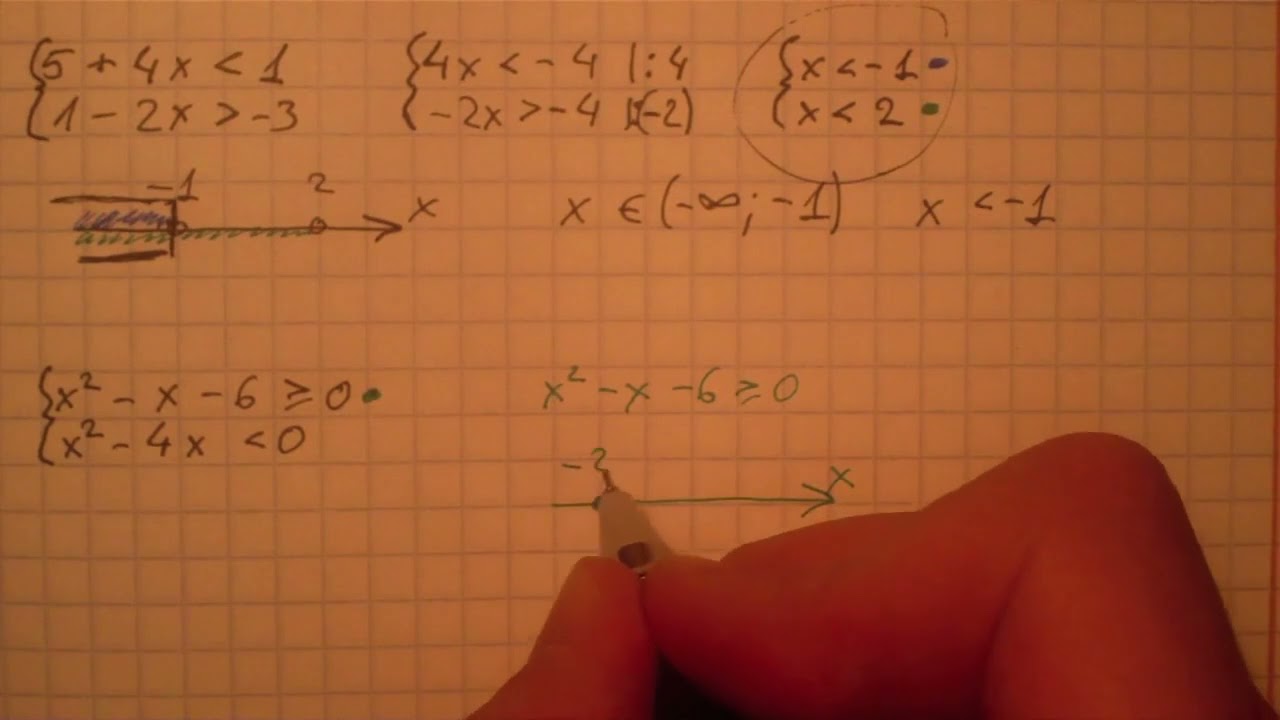 {5 + 4x < 1
{1 - 2x > -3
{4x < -4 |:4
{-2x > -4 |:(-2)
{x < -1
{x < 2
-1 2 x
x ∈ (-∞; -1) x < -1
{x² - x - 6 ≥ 0
{x² - 4x < 0
x² - x - 6 ≥ 0
-2 x